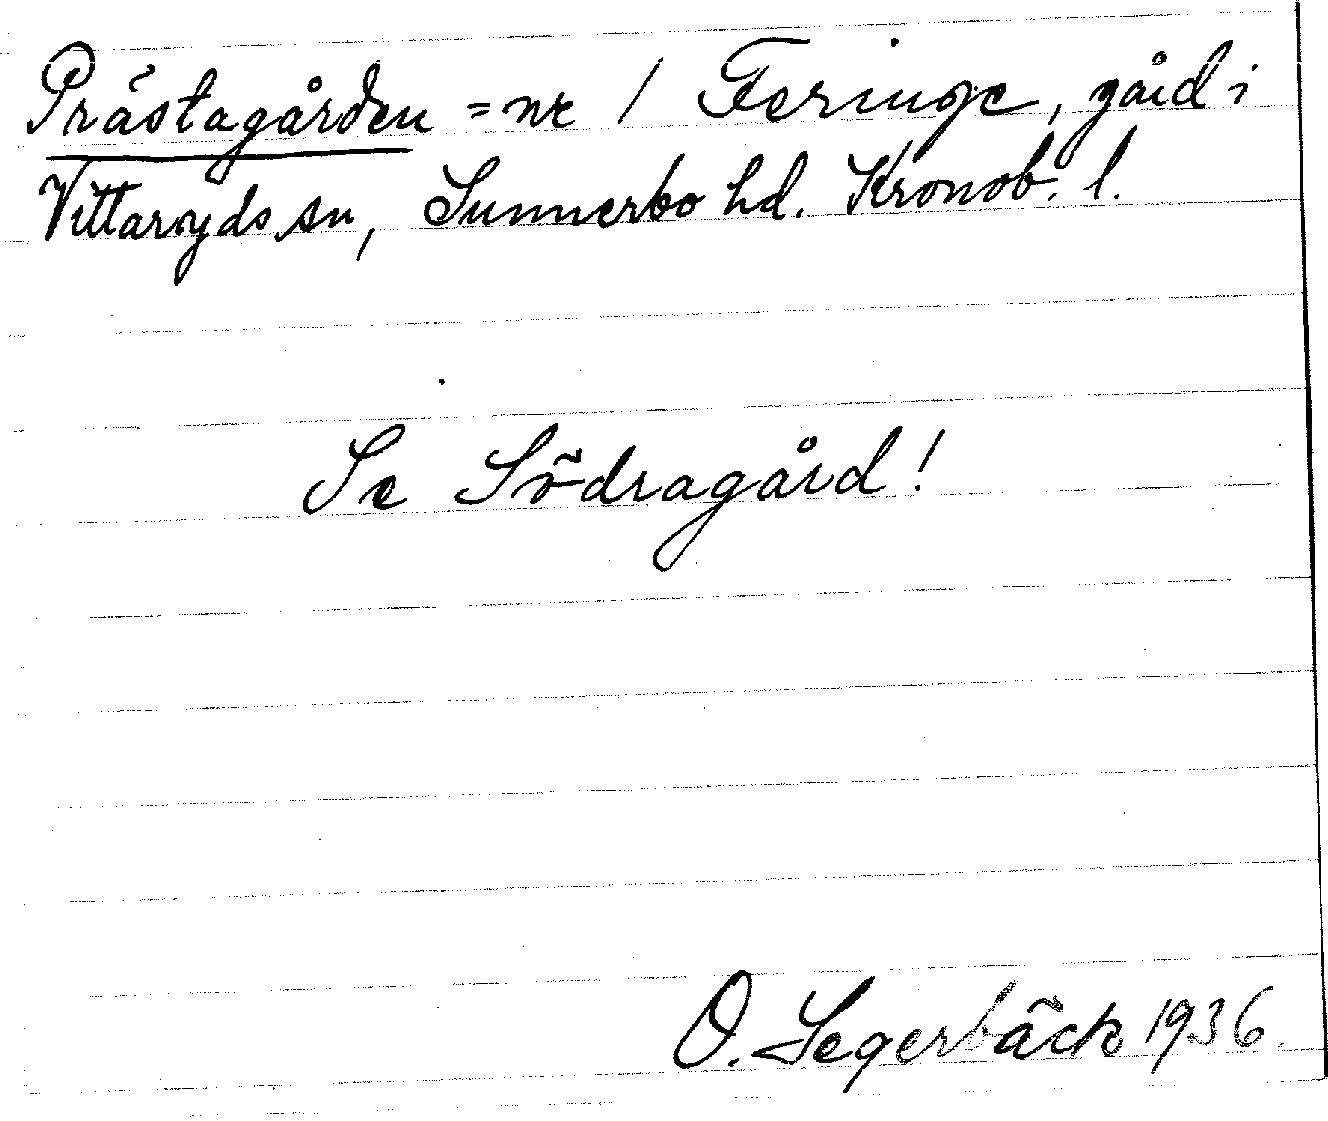 Prästagården = nr 1 Feringe, gård i
Vittaryds sn, Sunnerbo hd. Kronob. l.
Se Södragård!
O. Segerbäck 1936.